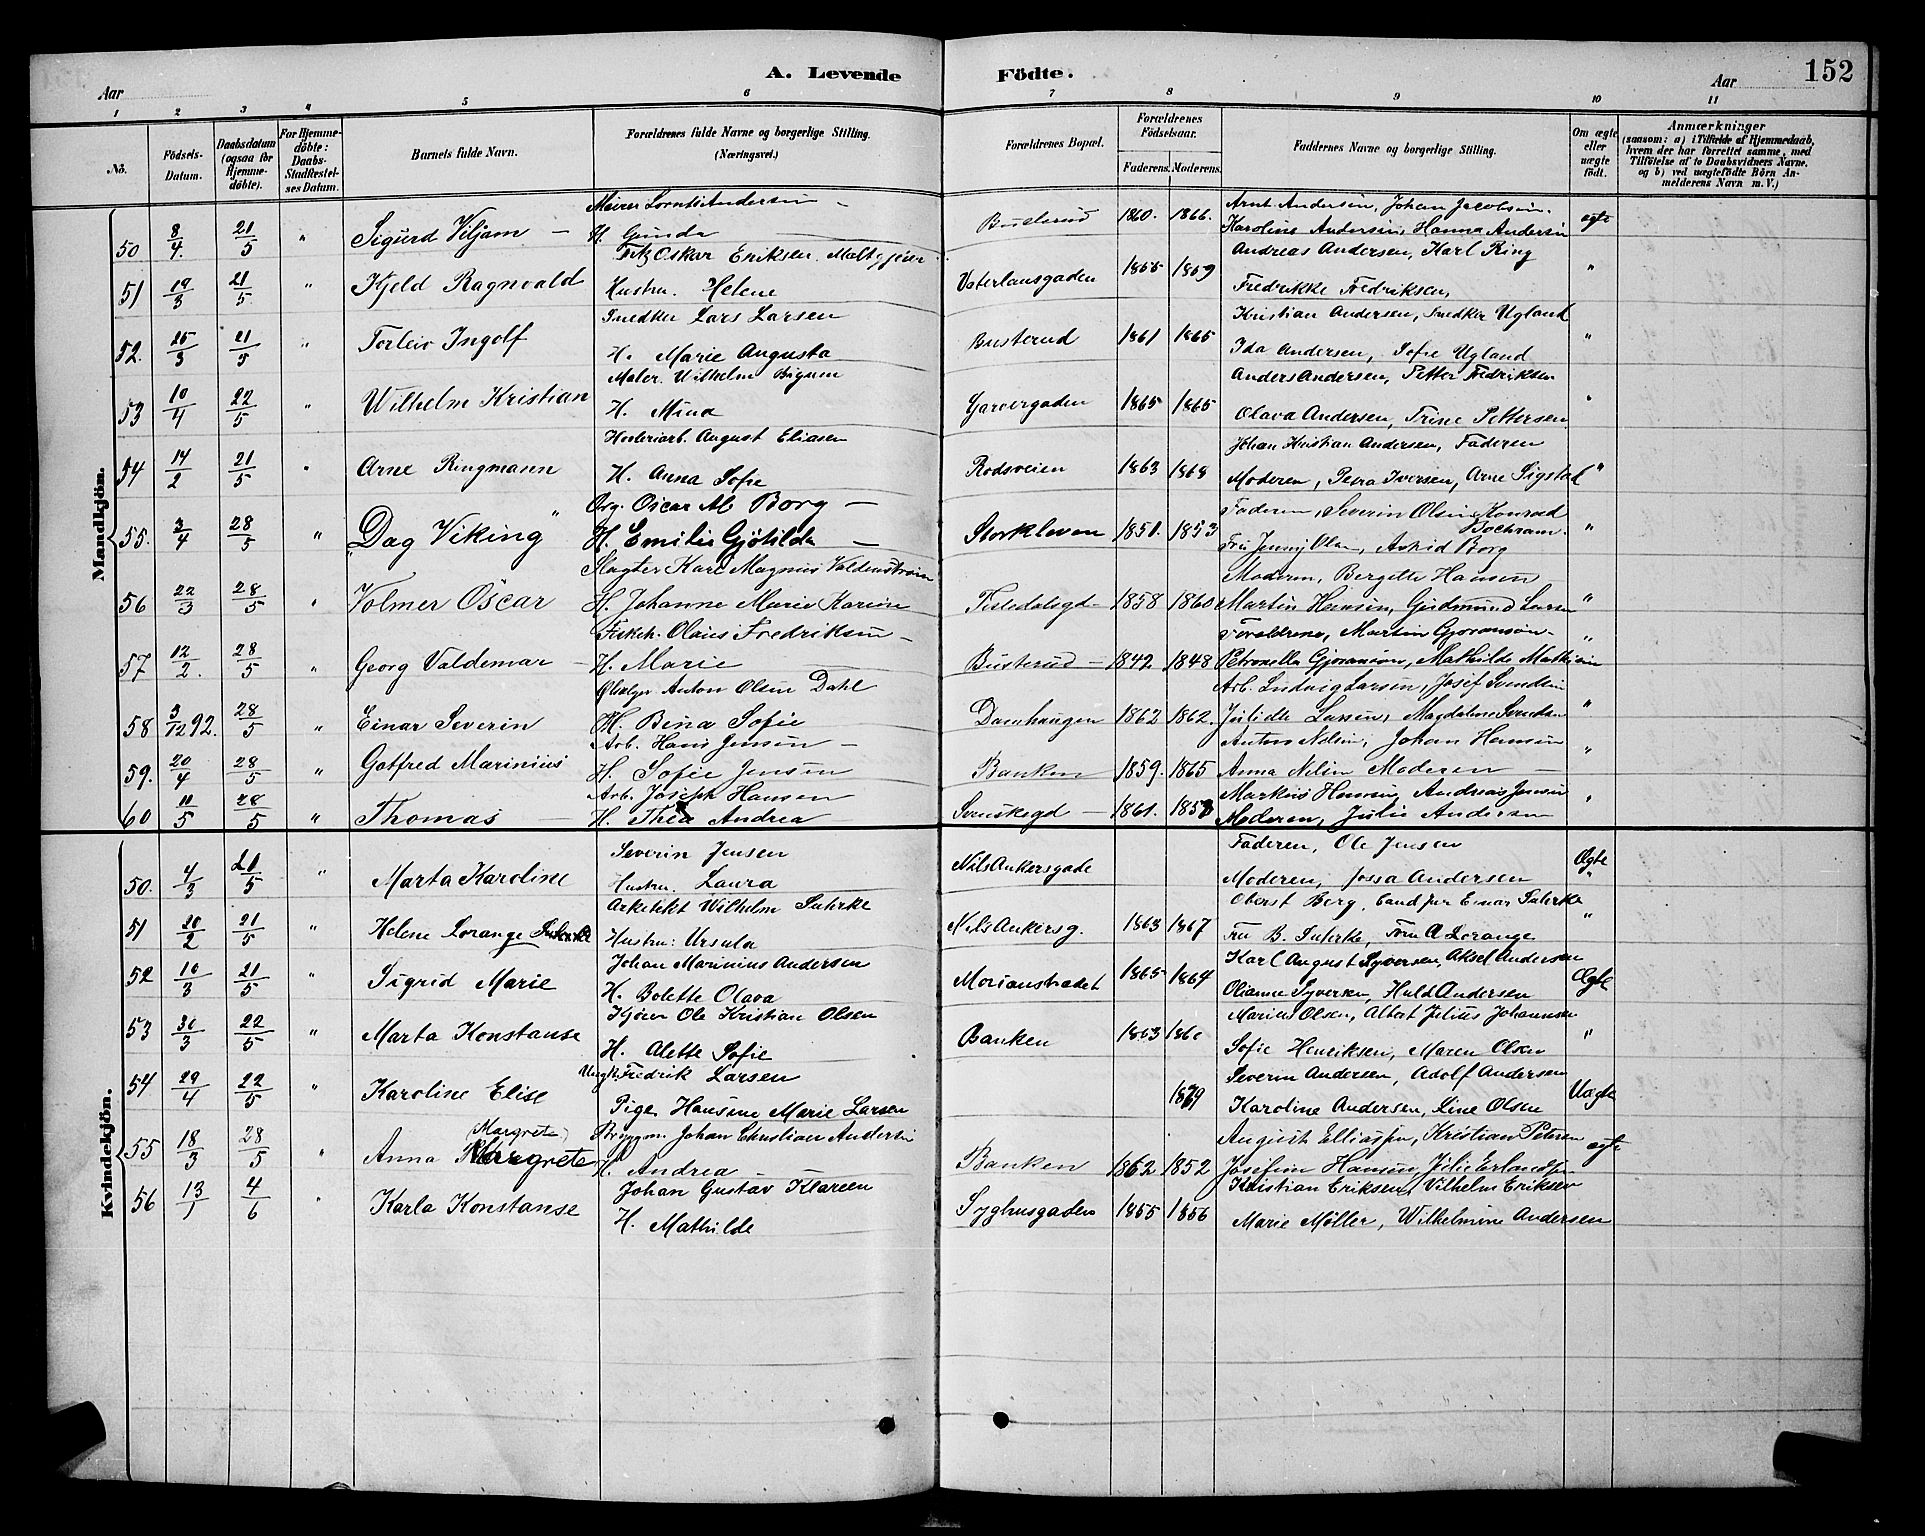 A. Levende Födte.
152
Aar
Aar
1 2 3 4 5 6 7 8 9 10 11
No.
Födsels-Datum.
Daabsdatum (ogsaa for Hjemme-döbte).
For Hjemme-döbte: Daabs-Stadfæstel-ses Datum.
Barnets fulde Navn.
Forældrenes fulde Navne og borgerlige Stilling. (Næringsvei.)
Forældrenes Bopæl.
Forældrenes Födselsaar.
Faderens. Moderens.
Faddernes Navne og borgerlige Stilling.
Om ægte eller uægte födt.
Anmærkninger
(saasom: a) i Tilfælde af Hjemmedaab,
hvem der har forrettet samme, med
Tilföielse af to Daabsvidners Navne,
og b) ved uægtefödte Börn An-
melderens Navn m. V.)
Mandkjön.
Murer Lorntz Andersen - Arnt Andersen, Johan Jacobsen,
50 8/4. 21/5 " Sigurd Viljam - H. Gunda Busterud 1860. 1866. Karoline Andersen, Hanna Andersen ægte
Fritz Oskar Eriksen. Maltgjører. Andreas Andersen, Karl Ring
51 19/3 21/5 " Kjeld Ragnvald Hustru. Helene Vaterlansgaden 1855 1859 Fredrikke Fredriksen, "
Snedker Lars Larsen Kristian Andersen, Snedker Ugland
52. 25/3 21/5 " Torleiv Ingolf H. Marie Augusta Busterud 1861 1865 Ida Andersen, Sofie Ugland "
Maler. Wilhelm Bignen Anders Andersen, Petter Fredriksen
53 10/4 22/5 " Wilhelm Kristian H. Mina Garvergaden 1865 1865 Olava Andersen, Trine Pettersen "
August Eliasen Johan Kristian Andersen, Faderen
54 14/2 21/5 " Arne Ringmann H. Anna Sofie Rodsveien 1863 1868 Moderen, Petra Iversen, Arne Sigstad "
Org. Oscar M Borg - Faderen, Severin Olsen, Konrad
55. 3/4 28/5 " "Dag Viking" H. Emilie Gjötilda - Storkleven 1851. 1853 Fru Jenny Olsen, Astrid Borg "
Slagter Karl Magnus Valdenström Moderen, Bergitte Hansen
56 22/3 28/5 " Volmer Oscar H. Johanne Marie Karine Tistedalsgd- 1858 1860 Martin Hansen, Gudmund Larsen "
Fiskeh. Olaus Fredriksen - Forældrene, Martin Gjøransøn-
57 12/2. 28/5 " Georg Valdemar - H. Marie Busterud - 1842. 1848 Petronella Gjøransøn, Mathilde Mathisen "
Anton Olsen Dahl Arb. Ludvig Larsen, Josef Svendsen
58 3/12 92. 28/5 " Einar Severin H. Bina Sofie Damhaugen 1862 1862. Julidle Larsen, Magdalene Svendsen "
Arb. Hans Jensen - Anton Nilsen, Johan Hansen
59. 20/4 28/5 " Gotfred Marinius H. Sofie Jensen Banken 1859. 1865 Anna Nilsen Moderen - "
Arb. Joseph Hansen Markus Hansen, Andreas Jensen
60 11/5 28/5 " Thomas - H. Thea Andrea Svenskegd - 1861. 1858 Moderen, Julie Andersen "
Kvindekjön.
Severin Jensen Faderen, Ole Jensen
50. 4/3 21/5 " Marta Karoline Hustru. Laura Nils Ankersgade Moderen, Jossa Andersen Ægte "
Arkitekt Wilhelm Suhrke Oberst Berg, Cand fer Einar Suhrke
51 20/2 21/5 " Helene Lorange Suhrke Hustru: Ursula Nils Ankersg. 1863 1867 Fru B. Suhrke, Frøu A Lorange "
Johan Marinius Andersen Karl August Syversen, Aksel Andersen
52 10/3 21/5 " Sigrid Marie H. Bolette Olava Morianstrædet 1865 1864 Olianne Syversen, Huld Andersen Ægte
Kjører Ole Kristian Olsen Marius Olsen, Albert Julius Johannsen
53 30/3 22/5 " Marta Konstanse H. Alette Sofie Banken 1863 1860 Sofie Henriksen, Maren Olsen "
Ungk. Fredrik Larsen Severin Andersen, Adolf Andersen
54 29/4 22/5 " Karoline Elise Pige Hansine Marie Larsen 1869 Karoline Andersen, Line Olsen Uægte
Margrete Bryggm. Johan Christian Andersen August Elliassen, Kristian Petersen
55 18/3 28/5 " Anna Margrete H. Andrea - Banken 1862 1852 Josefine Hansen, Julie Erlandsen ægte
Johan Gustav Klareen Kristian Eriksen, Vilhelm Eriksen
56 13/1 4/6 " Karla Konstanse H. Mathilde Syghusgaden 1855 1856 Marie Møller, Wilhelmine Andersen